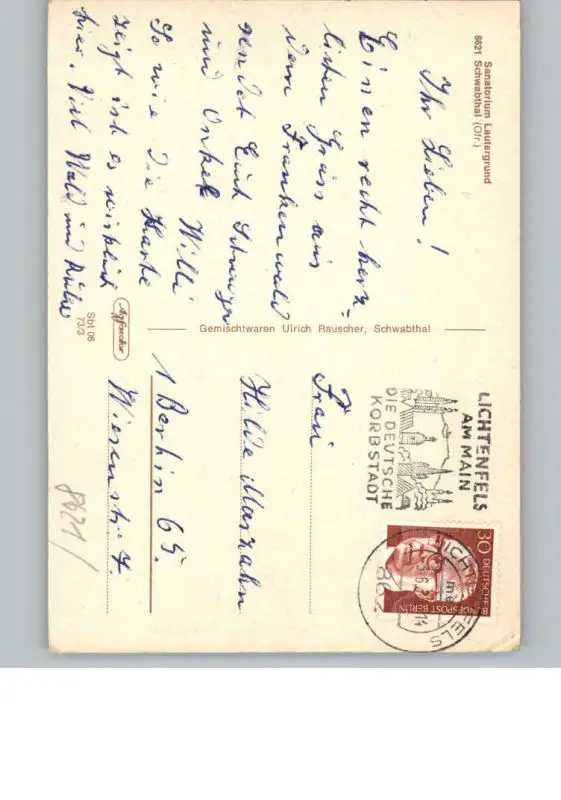 Sanatorium Lautergrund
8621 Schwabthal (Ofr.)
Ihr Lieben!
Einen recht herz=
lichen Gruss aus
dem Frankenwald
sendet Euch Schwager
und Onkel Willi
So wie die Karte
zeigt ist es wirklich
hier. Viel Wald und Ruhe
Gemischtwaren Ulrich Rauscher, Schwabthal
Agfacolor
Sbt 06
73/3
LICHTENFELS
AM MAIN
DIE DEUTSCHE
KORBSTADT
30 DEUTSCHE BUNDESPOST BERLIN
LICHTENFELS
862
Frau
Hilde Marzahn
1 Berlin 65.
Wiesenstr. 7.
8621